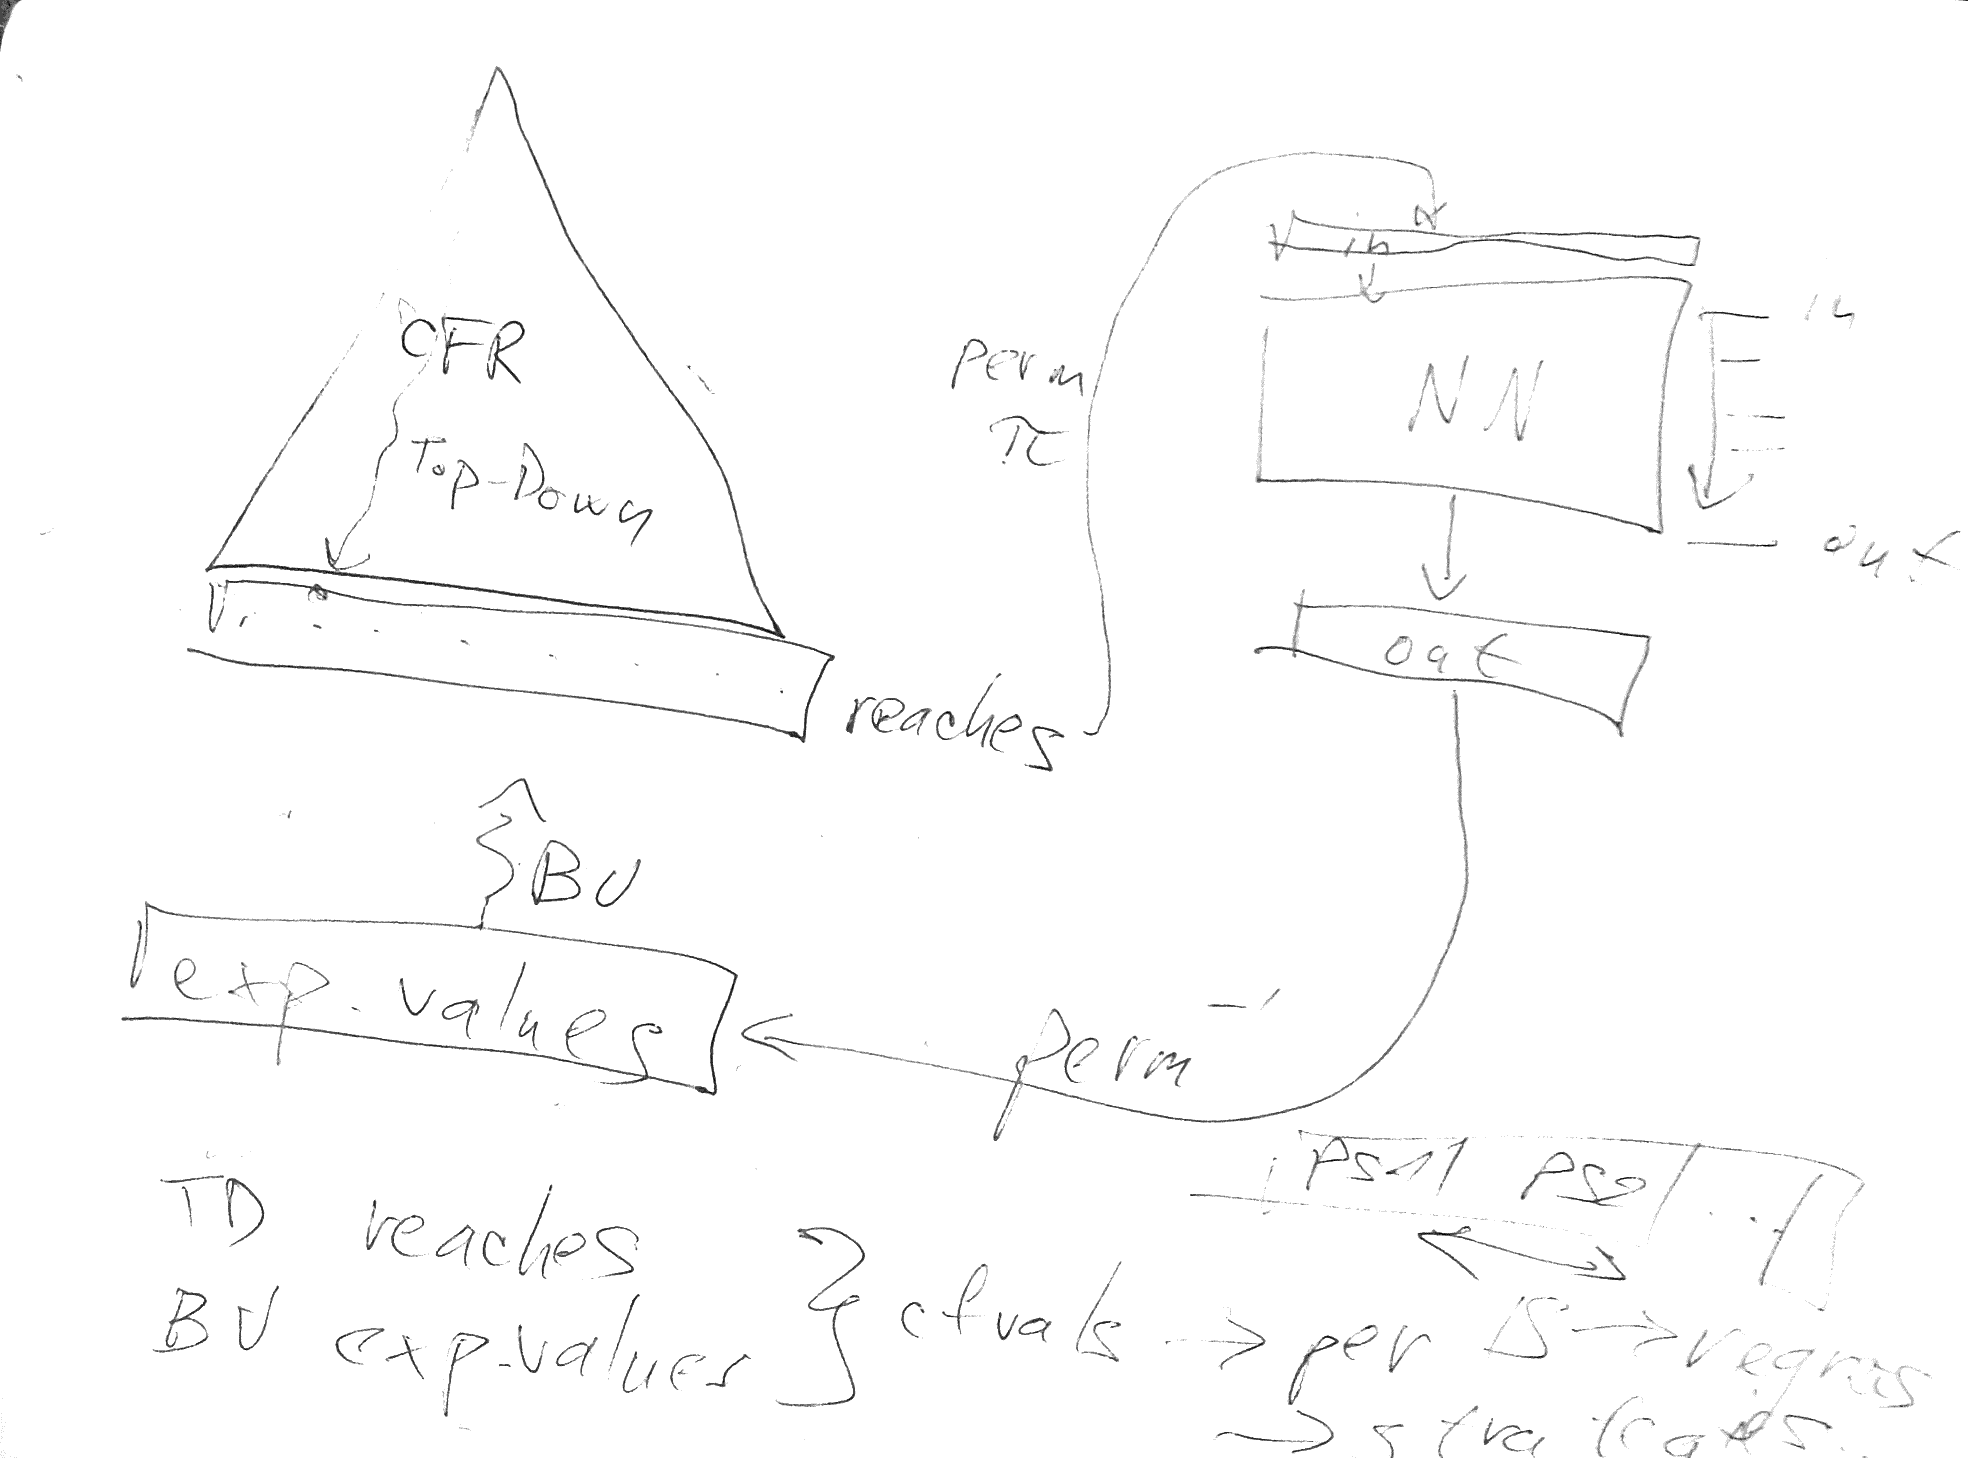 CFR
Top-Down
reaches
perm
π
in
NN
in
out
out
BU
exp. values
perm⁻¹
PS1 PS2 ...
TD reaches
BU exp. values
} cfvals → per IS → regrets
→ strategies...